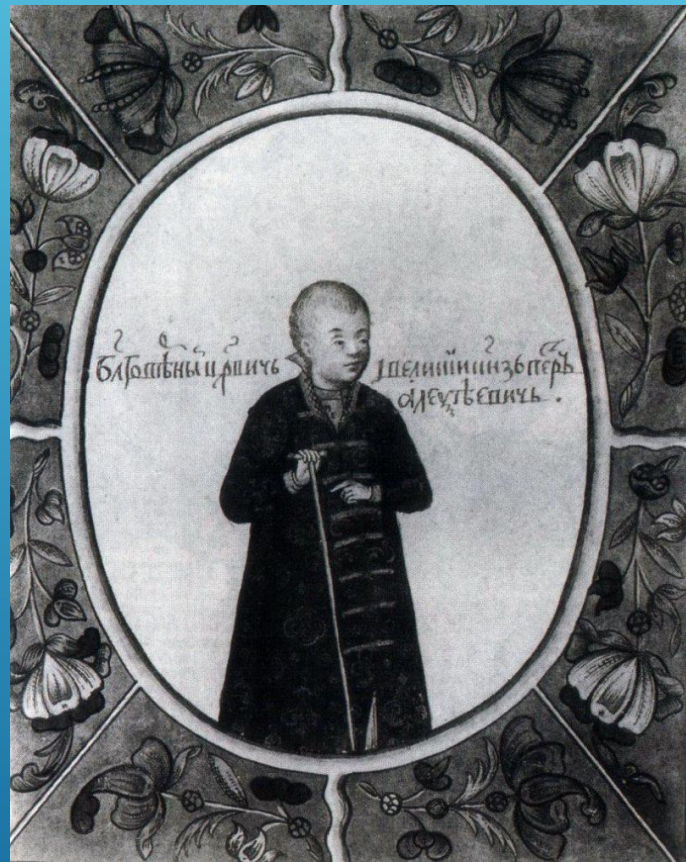 блговѣⷬны цр҃вичь івеликиикнзь петръ
алеѯѣевичь.